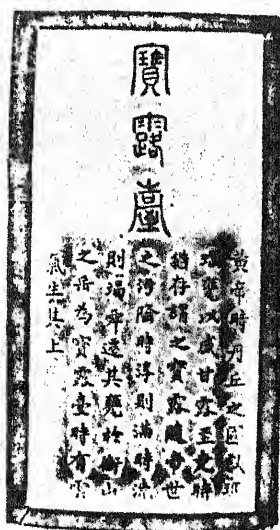 寶露臺
黄帝時丹丘之國獻瑪
瑙甕以盛甘露至堯時
猶存謂之寶露隨帝世
之汚隆時淳則滿時澆
則竭舜遷其甕於衡山
之岳為寶露臺時有雲
氣生其上